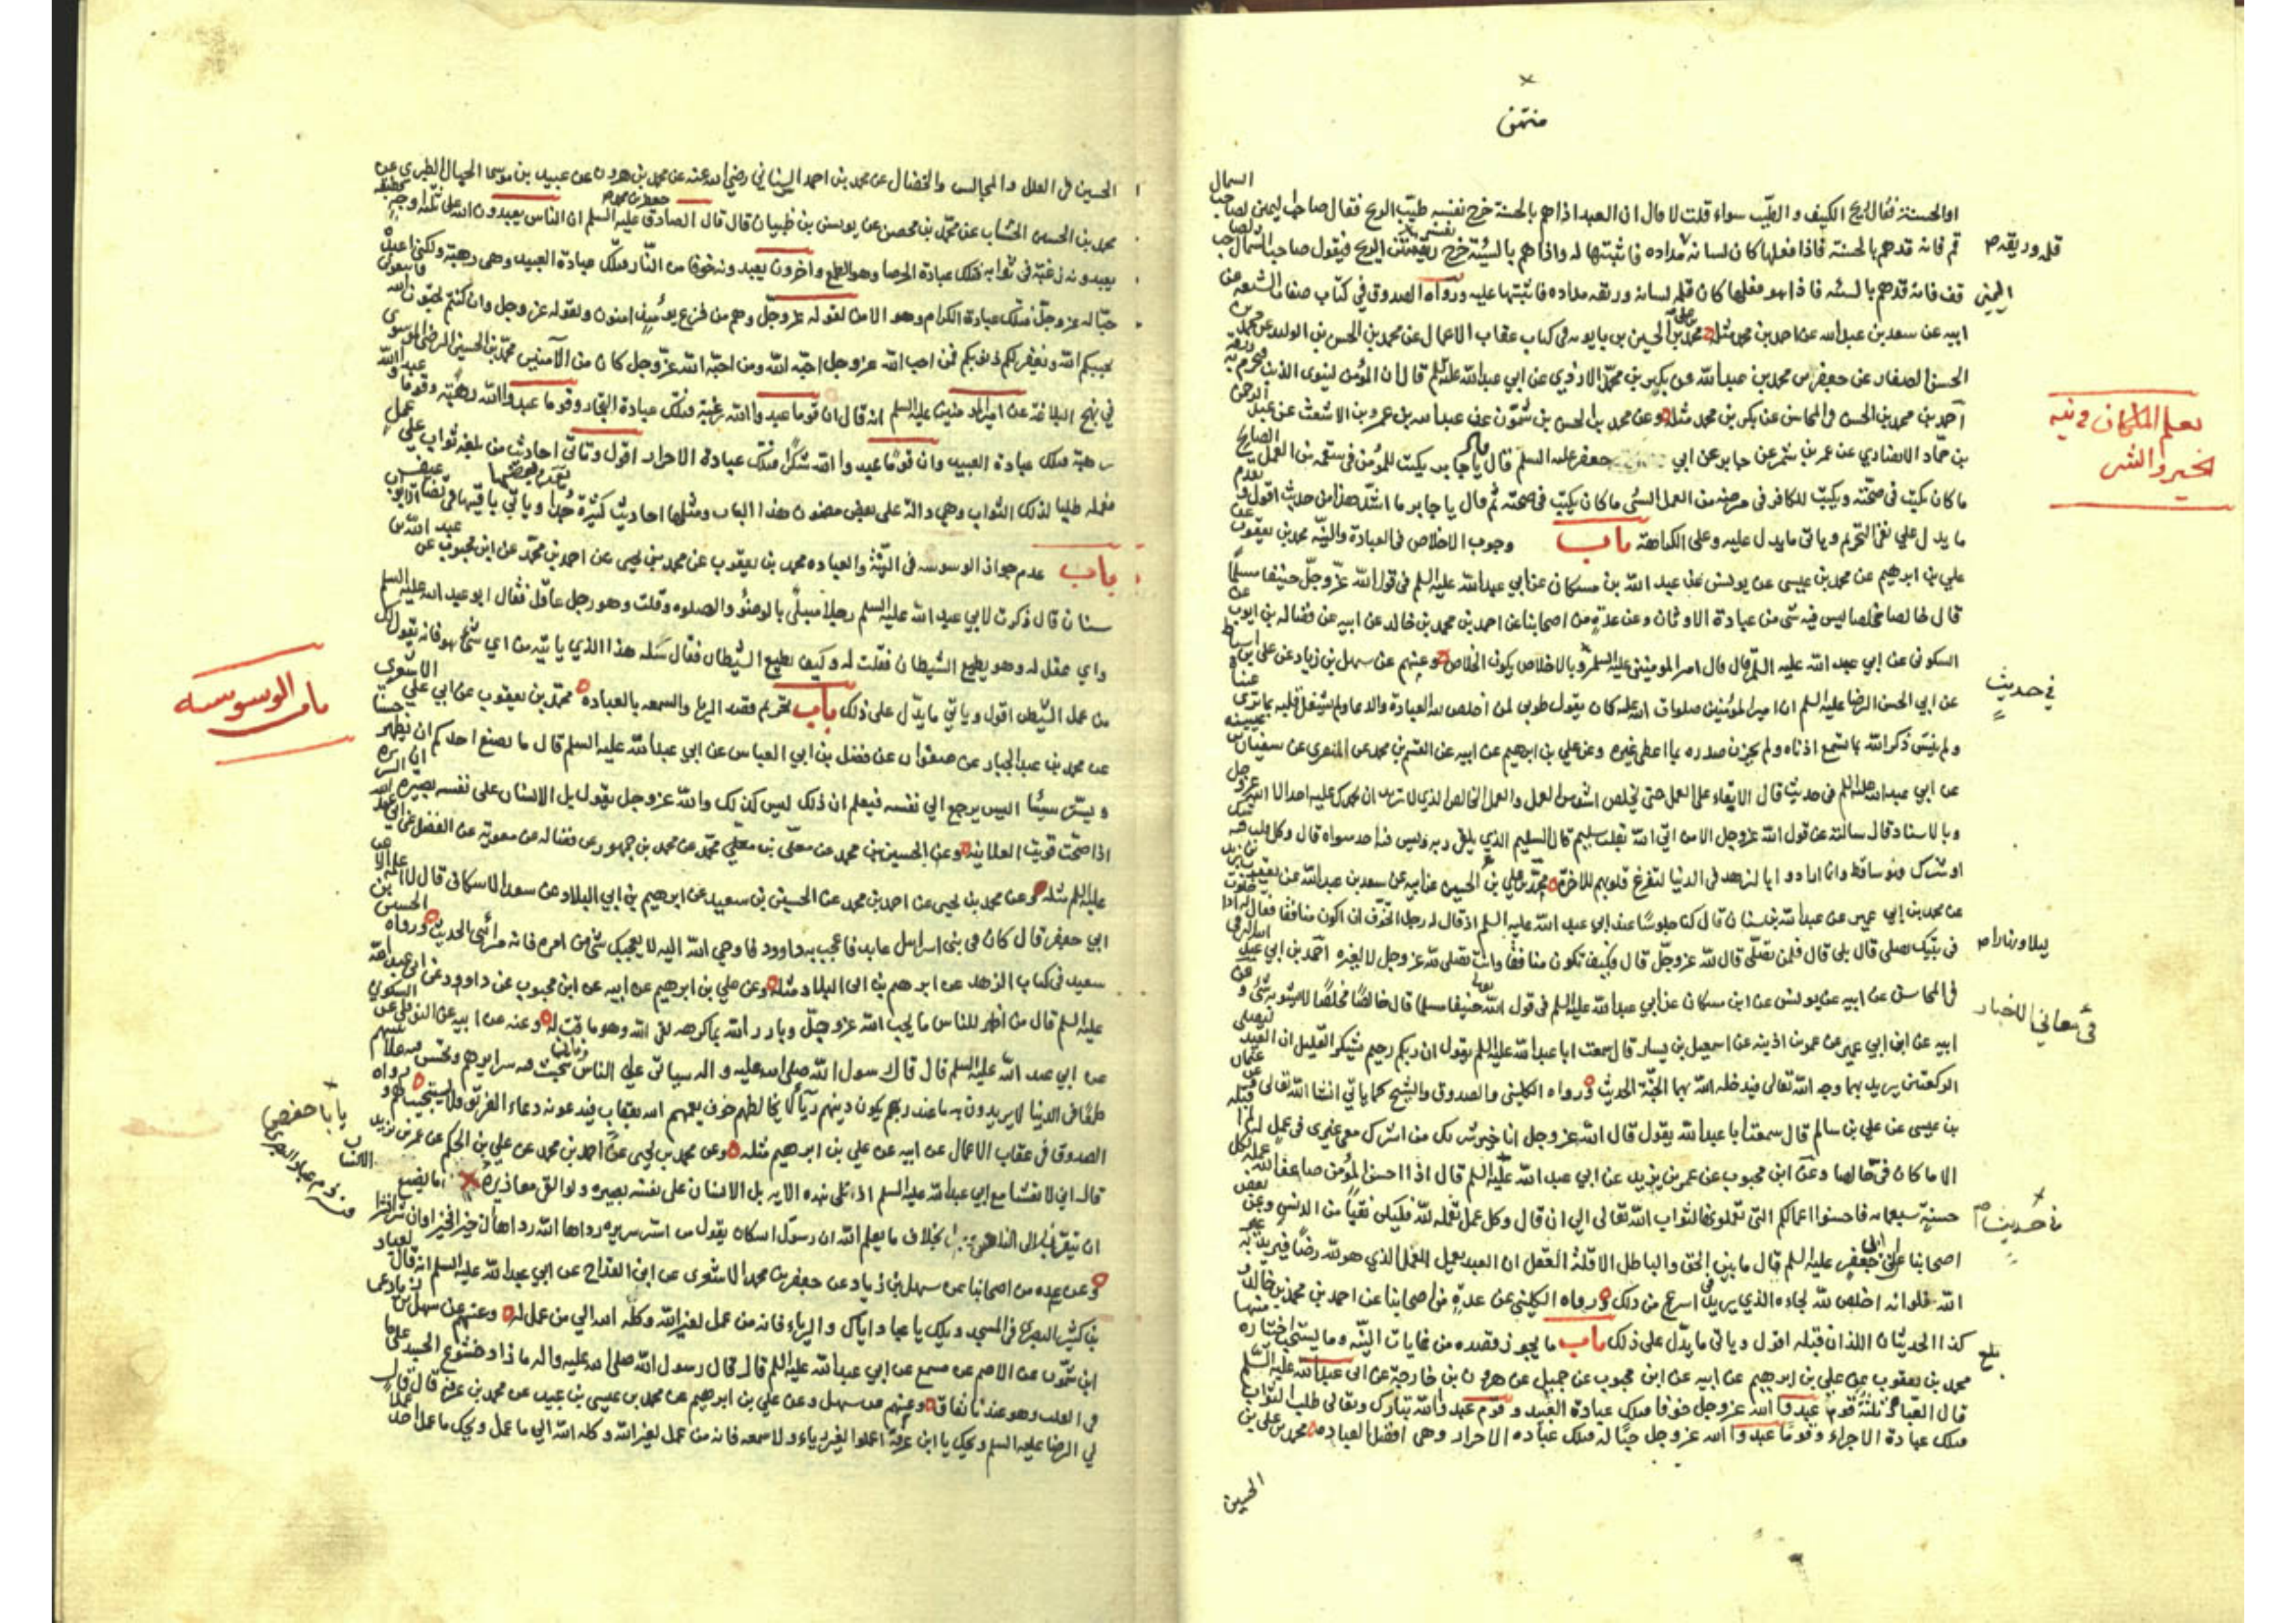 منتن
او الحسنة فقال ريح الكنيف والطيب سواء قلت لا قال ان العبد اذا هم بالحسنة خرج نفسه طيب الريح فقال صاحب اليمين لصاحب الشمال
قم فانه قد هم بالحسنة فاذا فعلها كان لسانه مداده فاثبتها له واذا هم بالسيئة خرج الريح فيقول صاحب الشمال لصاحب
قلمه وريقه
اليمين
قف فانه قد هم بالسيئة فاذا هو فعلها كان قلمه لسانه وريقه مداده فاثبتها عليه ورواه الصدوق في كتاب صفات الشيعة عن
ابيه عن سعد بن عبد الله عن احمد بن محمد مثله محمد بن علي بن الحسين بن بابويه في كتاب عقاب الاعمال عن محمد بن الحسن بن الوليد عن محمد بن
الحسن الصفار عن محمد بن عبد الله عن بكر بن محمد الازدي عن ابي عبد الله عليه السلم قال ان المؤمن لينوي الذنب فيحرم رزقه
احمد بن محمد في المحاسن عن بكر بن محمد مثله وعن محمد بن الحسن بن شمون عن عبد الله بن عمرو بن الاشعث عن عبد الرحمن
يعلم الملكان نية
الخير والشر
بن حماد الانصاري عن عمرو بن شمر عن جابر عن ابي جعفر عليه السلم قال قال يا جابر يكتب للمؤمن في سقمه من العمل الصالح
ما كان يكتب في صحته ويكتب للكافر في مرضه من العمل السيئ ما كان يكتب في صحته ثم قال يا جابر ما اشد هذا من حديث اقول وتقدم
ما يدل على نفي التحريم وياتي ما يدل عليه وعلى الكراهة باب وجوب الاخلاص في العبادة والنية محمد بن يعقوب عن
علي بن ابرهيم عن محمد بن عيسى عن يونس عن عبد الله بن مسكان عن ابي عبد الله عليه السلم في قول الله عز وجل حنيفا مسلما
قال خالصا مخلصا ليس فيه شئ من عبادة الاوثان وعن عدة من اصحابنا عن احمد بن محمد بن خالد عن ابيه عن
السكوني عن ابي عبد الله عليه السلم قال قال امير المومنين عليه السلم وبالاخلاص يكون الخلاص وعنهم عن سهل بن زياد عن علي بن اسباط
في حديث
عن ابي الحسن الرضا عليه السلم ان امير المؤمنين صلوات الله عليه كان يقول طوبى لمن اخلص لله العبادة والدعا ولم يشغل قلبه بما ترى عيناه
ولم ينس ذكر الله بما تسمع اذناه ولم يحزن صدره بما اعطي غيره وعن علي بن ابرهيم عن ابيه عن القسم بن محمد عن المنقري عن سفيان بن عيينة
عن ابي عبد الله عليه السلم في حديث قال الابقاء على العمل حتى يخلص اشد من العمل والعمل الخالص الذي لا تريد ان يحمدك عليه احد الا الله عز وجل
وبالاسناد قال سالته عن قول الله عز وجل الا من اتى الله بقلب سليم قال السليم الذي يلقى ربه وليس فيه احد سواه قال وكل قلب فيه شك
او شرك فهو ساقط وانما ارادوا بالزهد في الدنيا لتفرغ قلوبهم للاخرة محمد بن علي بن الحسين عن ابيه عن سعد بن عبد الله عن يعقوب بن يزيد
عن محمد بن ابي عمير عن عبد الله بن سنان قال كنا جلوسا عند ابي عبد الله عليه السلم اذ قال له رجل اتخوف ان اكون منافقا فقال له اذا خلوت
في بيتك تصلي قال بلى قال فلمن تصلي قال لله عز وجل قال فكيف تكون منافقا وانت تصلي لله عز وجل لا لغيره احمد بن ابي عبد الله البرقي
ليلا ونهارا
في المحاسن عن ابيه عن يونس عن ابن مسكان عن ابي عبد الله عليه السلم في قول الله حنيفا مسلما قال خالصا مخلصا لا يشوبه شئ وعن
في معاني الاخبار
ابيه عن ابن ابي عمير عن عمر بن اذينه عن اسمعيل بن يسار قال سمعت ابا عبد الله عليه السلم يقول ان ربكم رحيم يشكر القليل ان العبد ليصلي
الركعتين يريد بهما وجه الله تعالى فيدخله الله بهما الجنة الحديث ورواه الكليني والصدوق والشيخ كما ياتي ان شا الله تعالى وعن عثمان
بن عيسى عن علي بن سالم قال سمعت ابا عبد الله يقول قال الله عز وجل انا خير شريك من اشرك معي غيري في عمل لم اقبله
الا ما كان لي خالصا وعن ابن محبوب عن عمر بن يزيد عن ابي عبد الله عليه السلم قال اذا احسن المؤمن ضاعف الله عمله لكل
حسنة سبعمائه فاحسنوا اعمالكم التي تعملونها لثواب الله تعالى الى ان قال وكل عمل تعمله لله فليكن نقيا من الدنس وعن بعض
في حديث
اصحابنا عن ابي جعفر عليه السلم قال ما بين الحق والباطل الا قلة العقل ان العبد يعمل العمل الذي هو لله رضا فيريد به غير
الله فلو انه اخلص لله لجاءه الذي يريد في اسرع من ذلك ورواه الكليني عن عدة من اصحابنا عن احمد بن محمد بن خالد و
كذا الحديثان اللذان قبله اقول وياتي ما يدل على ذلك باب ما يجوز قصده من غايات النية وما يستحب اختياره منها
بلغ
محمد بن يعقوب عن علي بن ابرهيم عن ابيه عن ابن محبوب عن جميل عن هرون بن خارجة عن ابي عبد الله عليه السلم
قال العباد ثلثة قوم عبدوا الله عز وجل خوفا فتلك عبادة العبيد وقوم عبدوا الله تبارك وتعالى طلب الثواب
فتلك عبادة الاجراء وقوما عبدوا الله عز وجل حبا له فتلك عباده الاحرار وهي افضل العباده محمد بن علي بن
الحسين
الحسين في العلل والمجالس والخصال عن محمد بن احمد السناني رضي الله عنه عن محمد بن هرون عن عبيد الله بن موسى الحبال الطبري عن
محمد بن الحسين الخشاب عن محمد بن محصن عن يونس بن ظبيان قال قال الصادق جعفر بن محمد عليه السلم ان الناس يعبدون الله على ثلثة اوجه فطبقة
يعبدونه رغبة في ثوابه فتلك عبادة الحرصا وهو الطمع واخرون يعبدونه خوفا من النار فتلك عبادة العبيد وهي رهبة ولكني اعبده
حبا له عز وجل فتلك عبادة الكرام وهو الامن لقوله عز وجل وهم من فزع يومئذ امنون ولقوله عز وجل وان كنتم تحبون الله فاتبعوني
يحببكم الله ويغفر لكم ذنوبكم فمن احب الله عز وجل احبه الله ومن احبه الله عز وجل كان من الآمنين محمد بن الحسين الرضي الموسوي
في نهج البلاغة عن امير المؤمنين عليه السلم انه قال ان قوما عبدوا الله رغبة فتلك عبادة التجار وقوما عبدوا الله
رهبة فتلك عبادة العبيد وان قوما عبدوا الله شكرا فتلك عبادة الاحرار اقول وتاتي احاديث من بلغه ثواب على عمل
فعمله طلبا لذلك الثواب وهي دالة على بعض مضمون هذا الباب ومثلها احاديث كثيرة جدا وياتي باقيها
باب عدم جواز الوسوسه في النية والعباده محمد بن يعقوب عن محمد بن يحيى عن احمد بن محمد عن ابن محبوب عن عبد الله بن
سنان قال ذكرت لابي عبد الله عليه السلم رجلا مبتلى بالوضوء والصلوه وقلت وهو رجل عاقل فقال ابو عبد الله عليه السلم
واي عقل له وهو يطيع الشيطان فقلت له وكيف يطيع الشيطان فقال سله هذا الذي ياتيه من اي شئ هو فانه يقول لك
باب الوسوسه
من عمل الشيطن اقول وياتي ما يدل على ذلك باب تحريم قصد الريا والسمعه بالعباده محمد بن يعقوب عن ابي علي الاشعري
عن محمد بن عبد الجبار عن صفوان عن فضل بن ابي العباس عن ابي عبد الله عليه السلم قال ما يصنع احدكم ان يظهر حسنا
ويسر سيئا اليس يرجع الى نفسه فيعلم ان ذلك ليس كذلك والله عز وجل يقول بل الانسان على نفسه بصيره ان السريره
اذا صحت قويت العلانيه وعن الحسين بن محمد عن معلى بن محمد عن محمد بن جمهور عن فضاله عن معويه عن الفضيل عن ابي عبد الله
عليه السلم مثله وعن محمد بن يحيى عن احمد بن محمد عن الحسين بن سعيد عن ابرهيم بن ابي البلاد عن سعد الاسكاف قال
ابي جعفر قال كان في بني اسرائيل عابد فاعجب به داوود فاوحى الله اليه لا يعجبك شئ من امره فانه مرائي الحديث ورواه الحسين بن
سعيد في كتاب الزهد عن ابرهيم بن ابي البلاد مثله وعن علي بن ابرهيم عن ابيه عن ابن محبوب عن داوود عن ابي عبد الله
عليه السلم قال من اظهر للناس ما يحب الله عز وجل وبارز الله بما كرهه لقي الله وهو ماقت له وعنه عن ابيه عن النوفلي عن السكوني
عن ابي عبد الله عليه السلم قال قال رسول الله صلى الله عليه واله سياتي على الناس زمان تخبث فيه سرايرهم وتحسن فيه علانيتهم
طمعا في الدنيا لا يريدون به ما عند ربهم يكون دينهم رياء لا يخالطهم خوف يعمهم الله بعقاب فيدعونه دعاء الغريق فلا يستجيب لهم ورواه
الصدوق في عقاب الاعمال عن ابيه عن علي بن ابرهيم مثله وعن محمد بن يحيى عن احمد بن محمد عن علي بن الحكم عن عمر بن يزيد
قال اني لاتعشا مع ابي عبد الله عليه السلم اذ تلى هذه الايه بل الانسان على نفسه بصيره ولو القى معاذيره
يا با حفص
ما يصنع الانسان
ان يتقرب الى الله بخلاف ما يعلم الله ان رسول الله كان يقول من اسر سريره رداها الله رداها ان خيرا فخير وان شرا فشر
وعن عده من اصحابنا عن سهل بن زياد عن جعفر بن محمد الاشعري عن ابن القداح عن ابي عبد الله عليه السلم انه قال لعباد
بن كثير البصري في المسجد ويلك يا عباد اياك والرياء فانه من عمل لغير الله وكله الله الى من عمل له وعنهم عن سهل بن زياد عن
ابن شمون عن الاصم عن مسمع عن ابي عبد الله عليه السلم قال قال رسول الله صلى الله عليه واله ما زاد خشوع الجسد على ما
في القلب فهو عندنا نفاق وعنهم عن سهل وعن علي بن ابرهيم عن محمد بن عيسى بن عبيد عن محمد بن عرفه قال قال
لي الرضا عليه السلم ويحك يا ابن عرفة اعملوا لغير رياء ولا سمعه فانه من عمل لغير الله وكله الله الى ما عمل ويحك ما عمل احد عملا